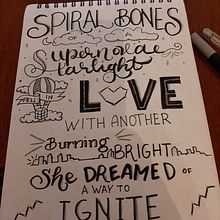 SPIRAL BONES
OF A
Supernovae
Starlight
FELL IN
LOVE
WITH ANOTHER
Burning BRIGHT
She DREAMED OF
A WAY TO
IGNITE